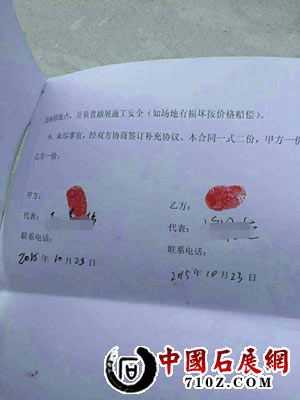 地点，并负责撤展施工安全（如场地有损坏按价格赔偿）。
9、未尽事宜，经双方协商签订补充协议。本合同一式二份，甲方一份
乙方一份。
甲方：
代表：
联系电话：
2015年10月23日
乙方：
代表：
联系电话：
2015年10月23日
中國石展網
710Z.COM